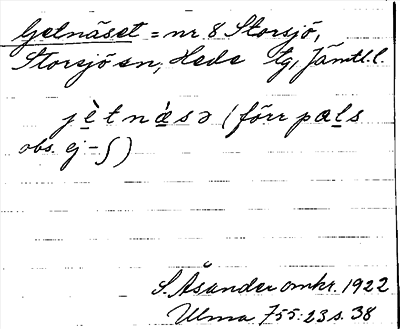 Getnäset = nr 8 Storsjö,
Storsjö sn, Hede tg, Jämtl. l.
jètnàsə (förr pals
obs. ej - ʃ)
S. Åsander omkr. 1922
Ulma 755:23 s. 38